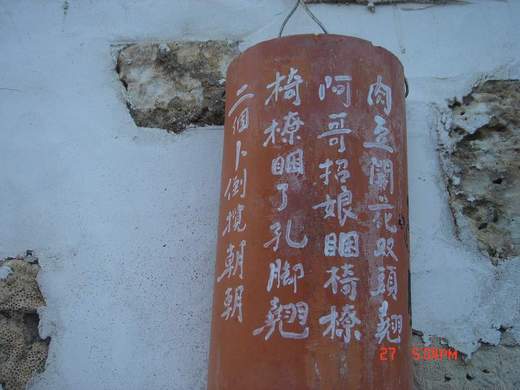 肉豆開花双頭翹
阿哥招娘睏椅橑
椅橑睏了孔脚翹
二個卜倒攬朝朝
27 5:08PM